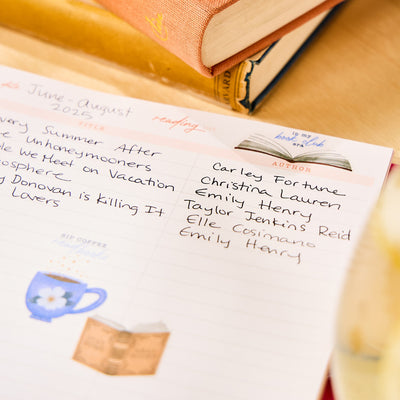 June - August
2025
reading
TITLE
is my
book club
era
AUTHOR
very Summer After
Carley Fortune
e Unhoneymooners
Christina Lauren
le We Meet on Vacation
Emily Henry
osphere
Taylor Jenkins Reid
y Donovan is Killing It
Elle Cosimano
Lovers
Emily Henry
SIP COFFEE